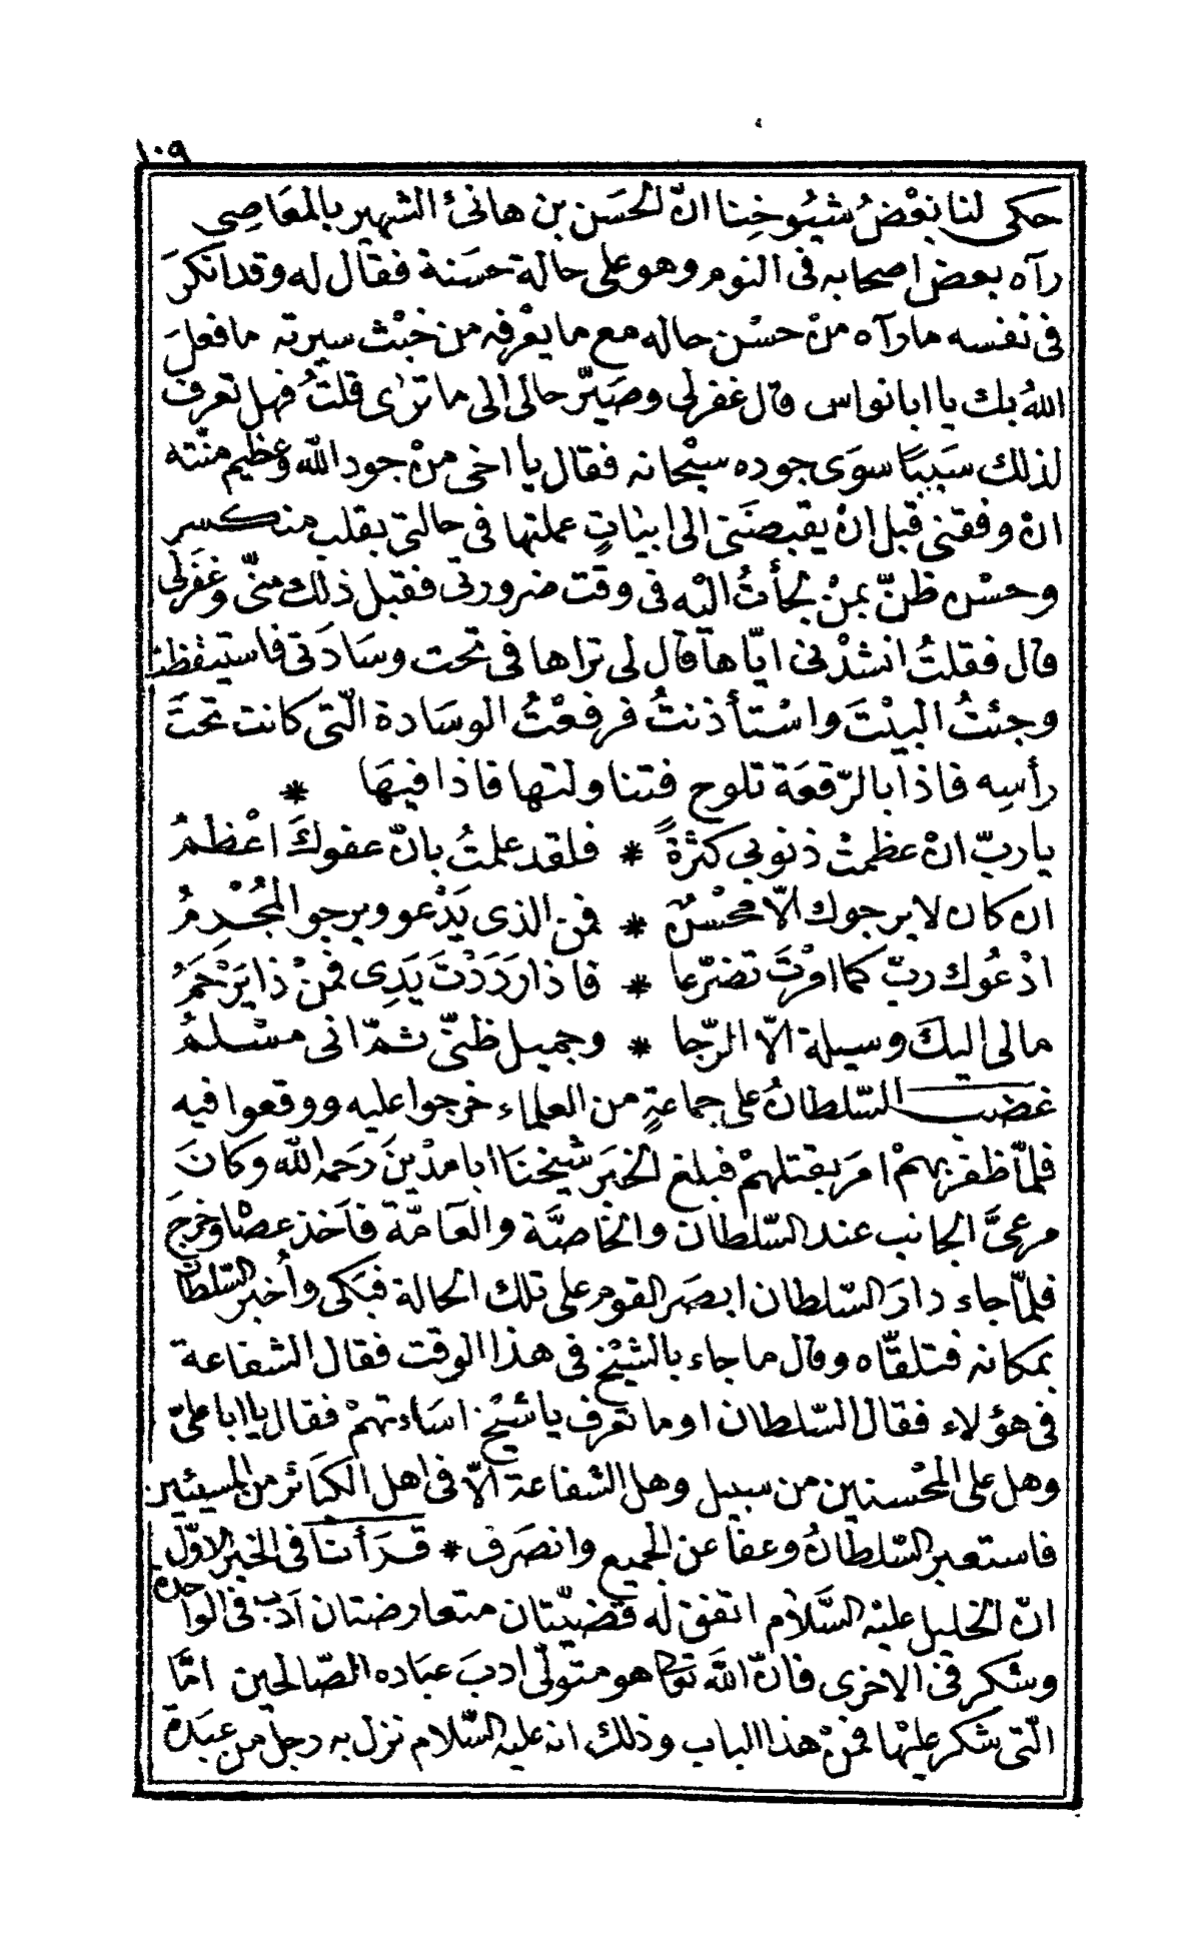 ١٠٩
حكى لنا بعْضُ شيُوخِنا انّ الحسَن بن هانئ الشهير بالمعَاصِى
رآه بعض اصحابه فى النوم وهو على حالة حسَنة فقال له وقد انكرَ
فى نفسه ما رآه منْ حسْن حاله مع ما يعْرفه من خبْث سيرته ما فعلَ
اللهُ بك يا ابا نواس قال غفر لى وصَيّر حالى الى ما ترٰى قلتُ فهل تعرف
لذلك سَبَبًا سوَى جوده سبْحانه فقال يا اخى منْ جود الله وعظيم منّته
انْ وفقنى قبل انْ يقبضَنى الى ابياتٍ عملتها فى حالتى بقلب منكسر
وحسْن ظنّ بمنْ لجأتُ اليْه فى وقت ضرورتى فقبل ذلك منّى وغفَر لى
قال فقلتُ انشدْنى ايّاها قال لى تراها فى تحت وسَادَتى فاستيقظت
وجئتُ البيْتَ واسْتأذنتُ فرفعْتُ الوسَادة الّتى كانت تحتَ
رأسِه فاذا بالرّقعَة تلوح فتناولتها فاذا فيهَا *
يا ربّ انْ عظمتْ ذنوبى كثْرةً * فلقد علمتُ بانّ عفوكَ اعْظمُ
ان كان لا يرجوك الّا محْسنٌ * فمن الذى يَدْعو ويرجو المُجْرِمُ
ادْعُوك ربّ كما امرْتَ تضرّعا * فاذا رَدَدْتَ يَدِى فمنْ ذا يَرْحَمُ
مالى اليكَ وسيلة الّا الرّجا * وجميل ظنّى ثمّ انى مسْلمُ
غضب السّلطانُ على جماعةٍ من العلماء خرجوا عليه ووقعوا فيه
فلمّا ظفر بهمْ امرَ بقتلهمْ فبلغ الخبَر شيخنَا ابا مدْينَ رَحمه الله وكانَ
مرعىَّ الجانب عند السّلطان والخاصَّة والعَامّة فاَخذ عصْا وخرجَ
فلمّا جاء دارَ السّلطان ابصَر القوم على تلك الحالة فبَكى وأُخبر السّلطانُ
بمكانه فتلقّاه وقال ما جاء بالشيْخ فى هذا الوقت فقال الشفاعة
فى هؤلاء فقال السّلطان اوما تعرف يا شيْخ اسَاءتهمْ فقال يا ابا علىّ
وهل على المحْسنين من سبيل وهل الشفاعة الّا فى اهل الكبَائر من المسيئين
فاستعبر السّلطانُ وعفا عن الجميع وانصَرف * قرأنا فى الخبر الاوّل
انّ الخليل عليْه السَّلام اتفق له قضيّتان متعارضتان اَدب فى الواحدة
وشكر فى الاخرى فانّ اللهَ تعالى هو متولّى ادبَ عبَاده الصّالحين امّا
الّتى شكر عليْها فمنْ هذا الباب وذلك انه عليه السّلام نزل به رجل من عبَدة